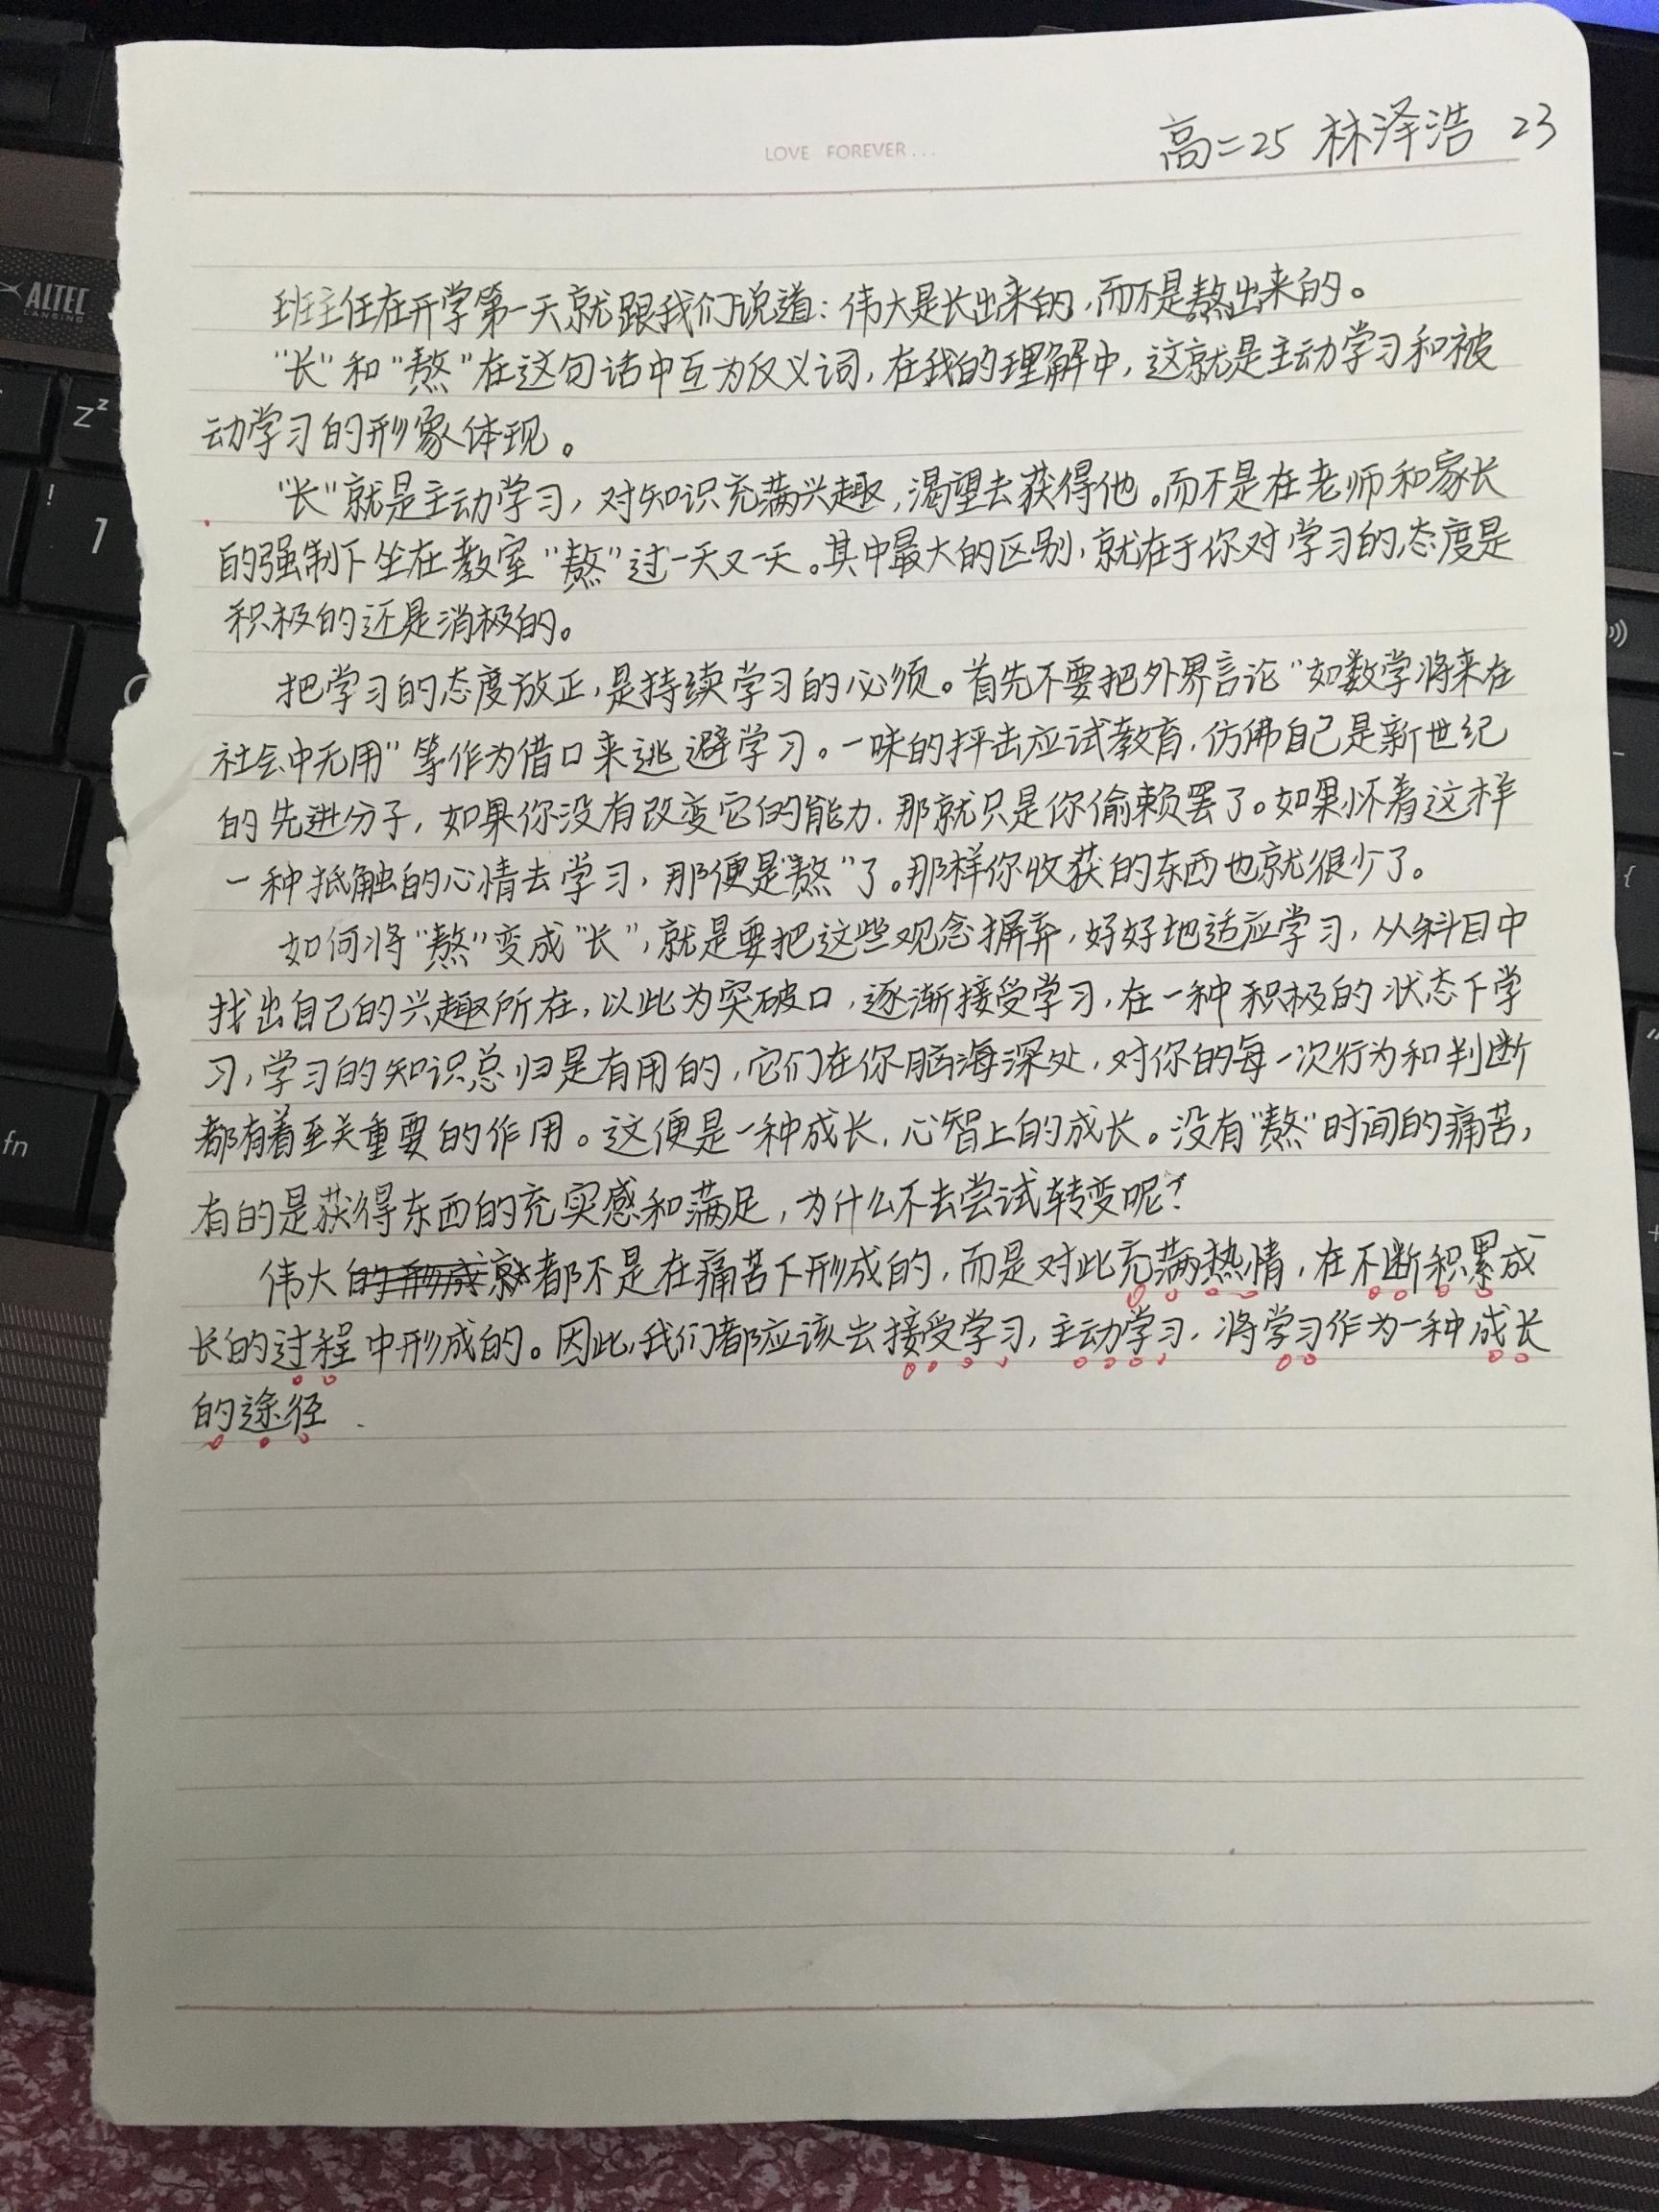 LOVE FOREVER...
高二25 林泽浩 23
班主任在开学第一天就跟我们说道：伟大是长出来的，而不是熬出来的。
“长”和“熬”在这句话中互为反义词，在我的理解中，这就是主动学习和被
动学习的形象体现。
“长”就是主动学习，对知识充满兴趣，渴望去获得他。而不是在老师和家长
的强制下坐在教室“熬”过一天又一天。其中最大的区别，就在于你对学习的态度是
积极的还是消极的。
把学习的态度放正，是持续学习的必须。首先不要把外界言论“如数学将来在
社会中无用”等作为借口来逃避学习。一味的抨击应试教育，仿佛自己是新世纪
的先进分子，如果你没有改变它的能力，那就只是你偷赖罢了。如果怀着这样
一种抵触的心情去学习，那便是“熬”了。那样你收获的东西也就很少了。
如何将“熬”变成“长”，就是要把这些观念摒弃，好好地适应学习，从科目中
找出自己的兴趣所在，以此为突破口，逐渐接受学习，在一种积极的状态下学
习，学习的知识总归是有用的，它们在你脑海深处，对你的每一次行为和判断
都有着至关重要的作用。这便是一种成长，心智上的成长。没有“熬”时间的痛苦，
有的是获得东西的充实感和满足，为什么不去尝试转变呢？
伟大都不是在痛苦下形成的，而是对此充满热情，在不断积累成
长的过程中形成的。因此，我们都应该去接受学习，主动学习，将学习作为一种成长
的途径.
ALTEC
LANSING
Zz
!
1
fn
{